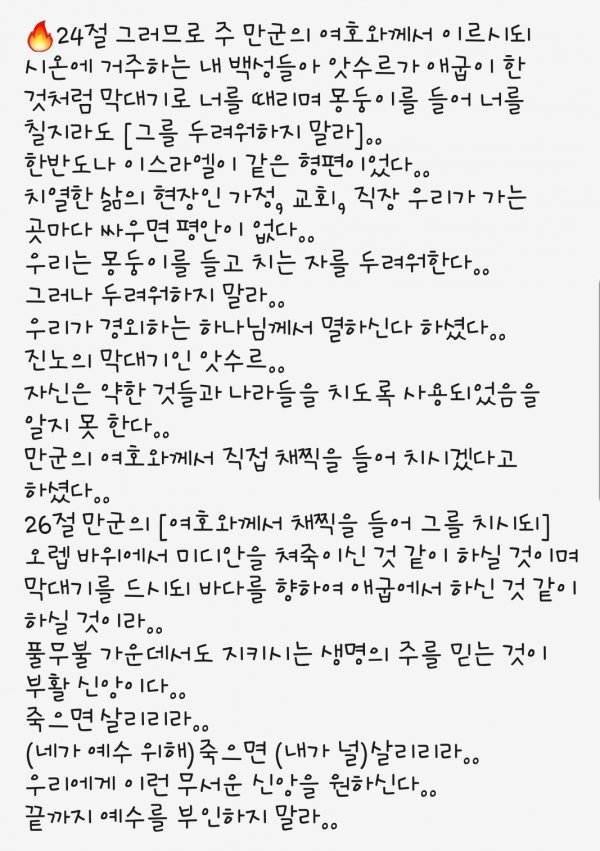 🔥24절 그러므로 주 만군의 여호와께서 이르시되
시온에 거주하는 내 백성들아 앗수르가 애굽이 한
것처럼 막대기로 너를 때리며 몽둥이를 들어 너를
칠지라도 [그를 두려워하지 말라]。。
한반도나 이스라엘이 같은 형편이었다。。
치열한 삶의 현장인 가정, 교회, 직장 우리가 가는
곳마다 싸우면 평안이 없다。。
우리는 몽둥이를 들고 치는 자를 두려워한다。。
그러나 두려워하지 말라。。
우리가 경외하는 하나님께서 멸하신다 하셨다。。
진노의 막대기인 앗수르。。
자신은 약한 것들과 나라들을 치도록 사용되었음을
알지 못 한다。。
만군의 여호와께서 직접 채찍을 들어 치시겠다고
하셨다。。
26절 만군의 [여호와께서 채찍을 들어 그를 치시되]
오렙 바위에서 미디안을 쳐죽이신 것 같이 하실 것이며
막대기를 드시되 바다를 향하여 애굽에서 하신 것 같이
하실 것이라。。
풀무불 가운데서도 지키시는 생명의 주를 믿는 것이
부활 신앙이다。。
죽으면 살리리라。。
(네가 예수 위해)죽으면 (내가 널)살리리라。。
우리에게 이런 무서운 신앙을 원하신다。。
끝까지 예수를 부인하지 말라。。